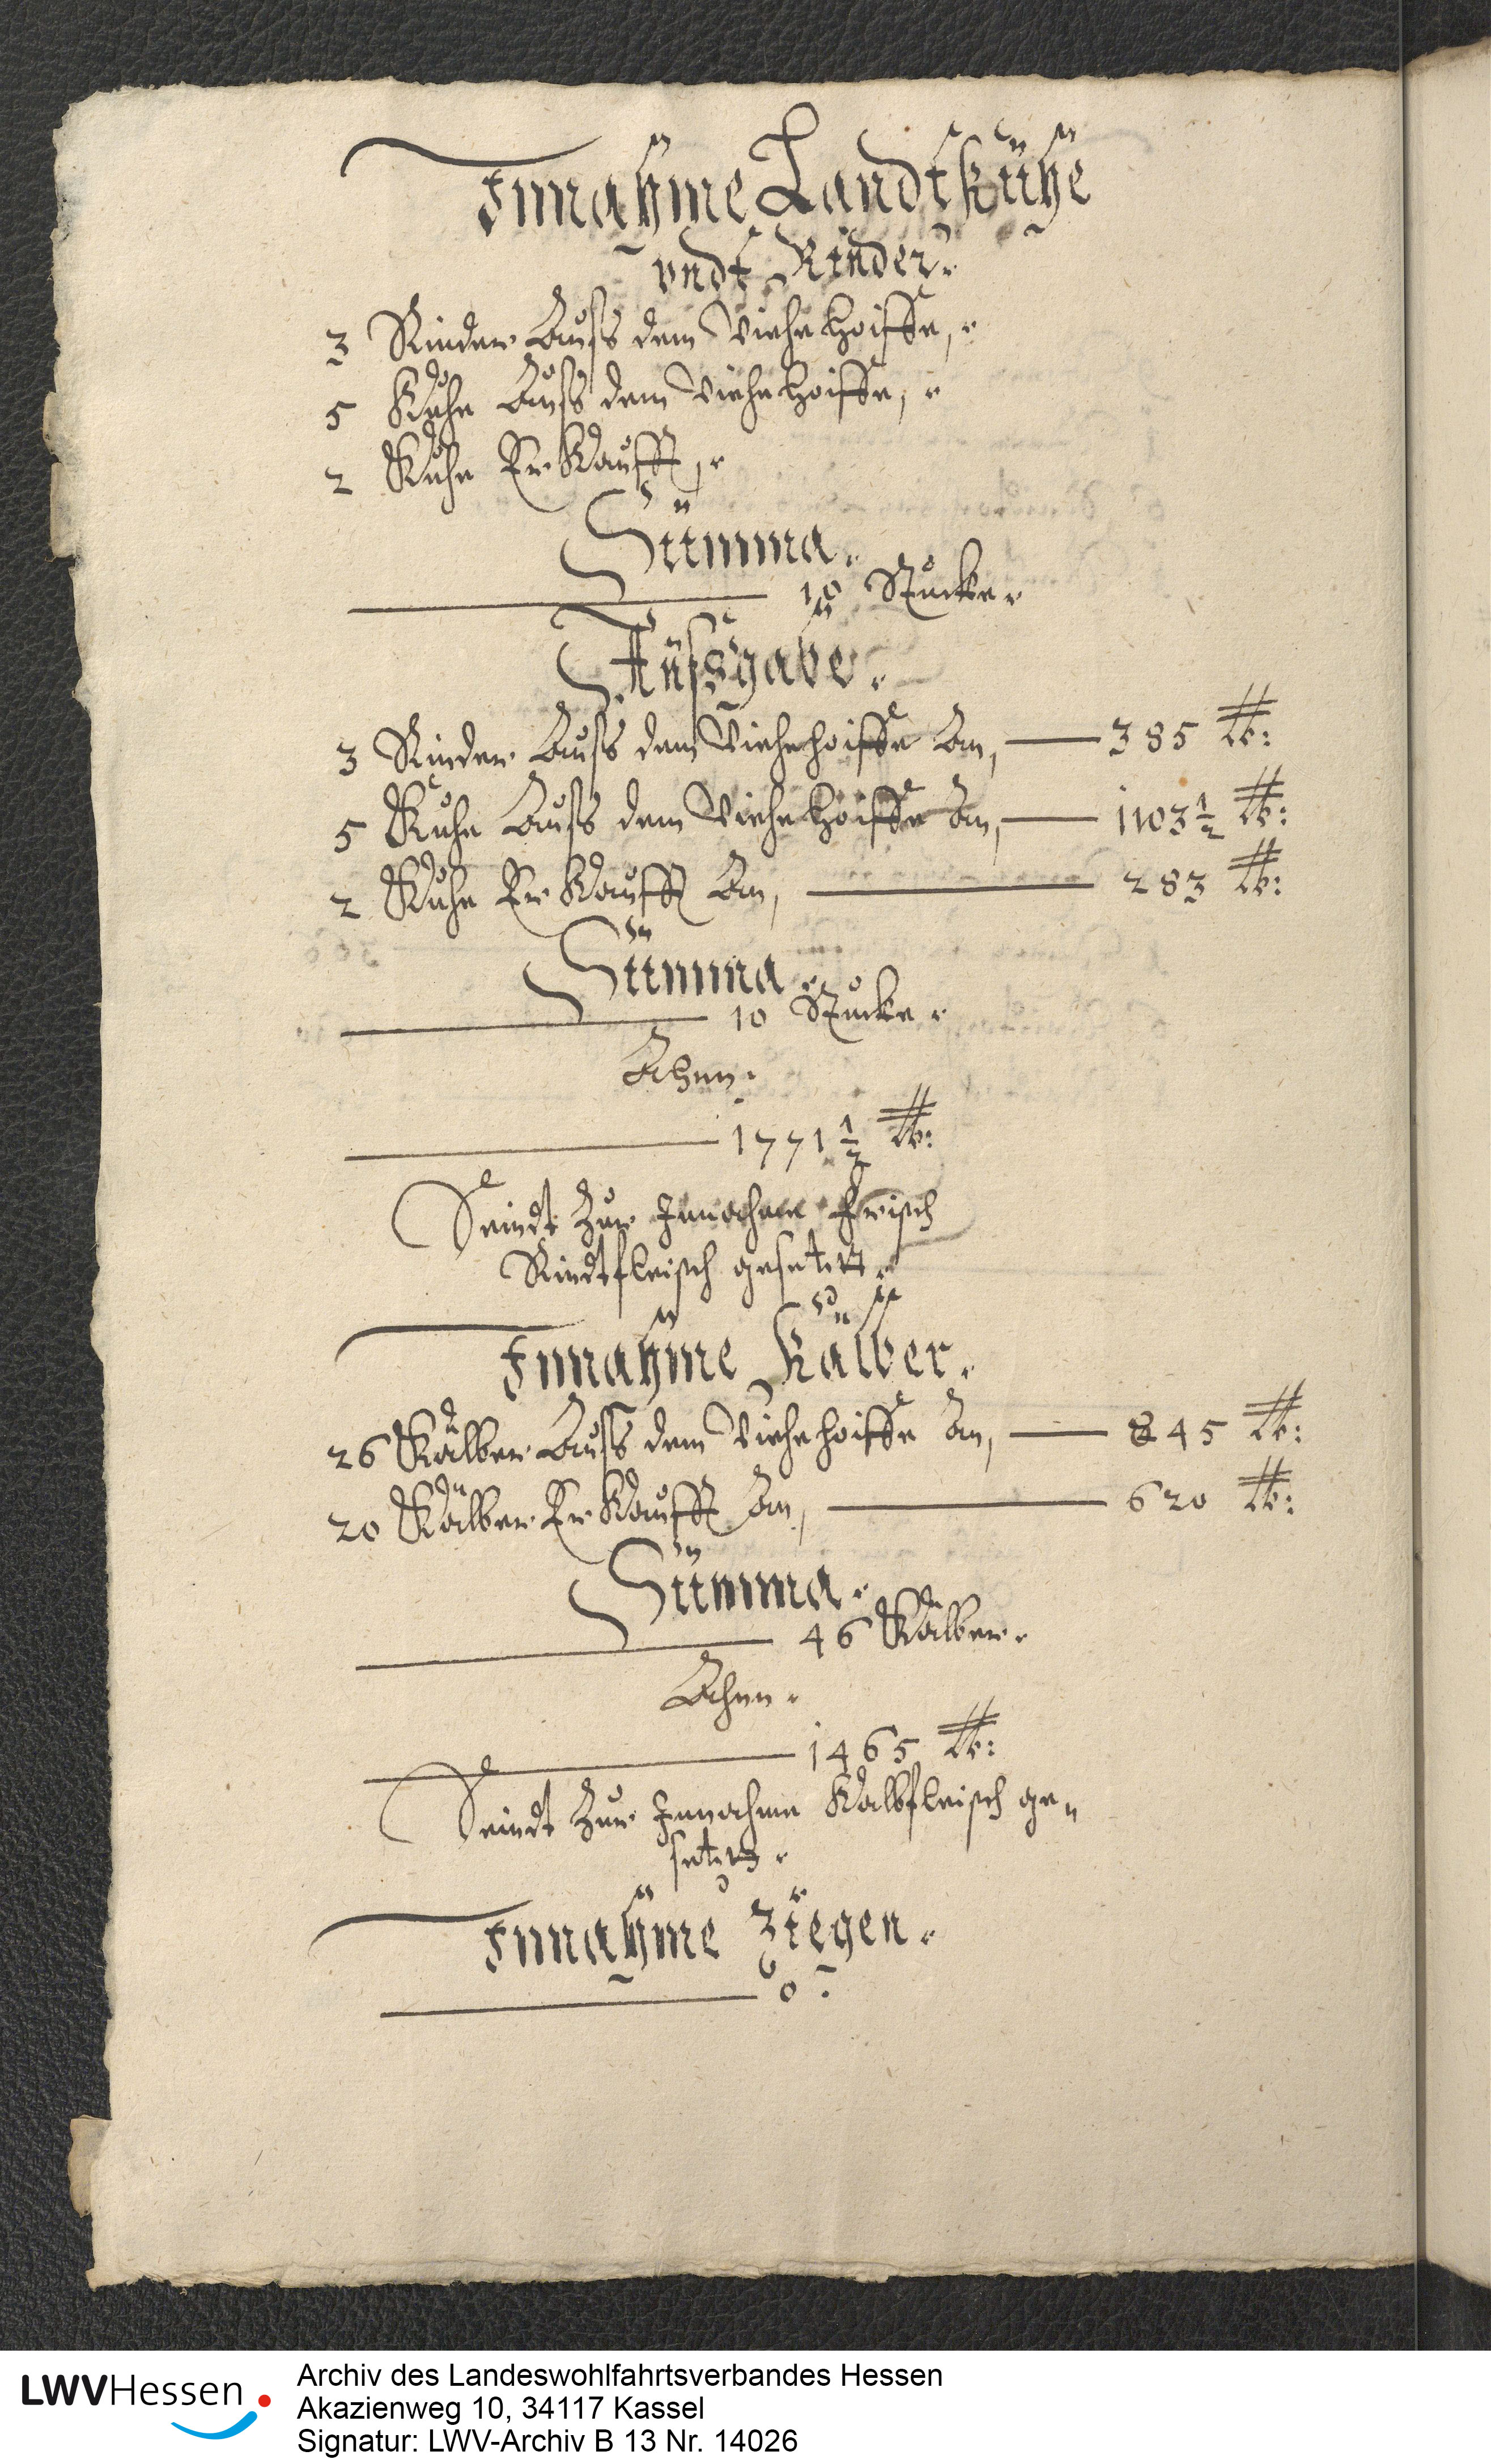 Innahme Landtkühe
vndt Rinder.
3 Rinder Auß dem Viehehoiffe,
5 Kuhe Auß dem Viehehoiffe,
2 Kuhe Erkaufft,
Summa.
10 Stucke.
Außgabe.
3 Rinder Auß dem Viehehoiffe An, 385 lb:
5 Kuhe Auß dem Viehehoiffe An, 1103 1/2 lb:
2 Kuhe Erkaufft An, 283 lb:
Summa.
10 Stucke.
Ahnn.
1771 1/2 lb:
Seindt Zur Innahme frisch
Rindtfleisch gesetzt.
Innahme Kälber.
26 Kälber Auß dem Viehehoiffe An, 845 lb:
20 Kälber Erkaufft An, 620 lb:
Summa.
46 Kälber.
Ahnn.
1465 lb:
Seindt Zur Innahme Kalbfleisch ge=
setzt.
Innahme Ziegen.
0.
LWVHessen
Archiv des Landeswohlfahrtsverbandes Hessen
Akazienweg 10, 34117 Kassel
Signatur: LWV-Archiv B 13 Nr. 14026